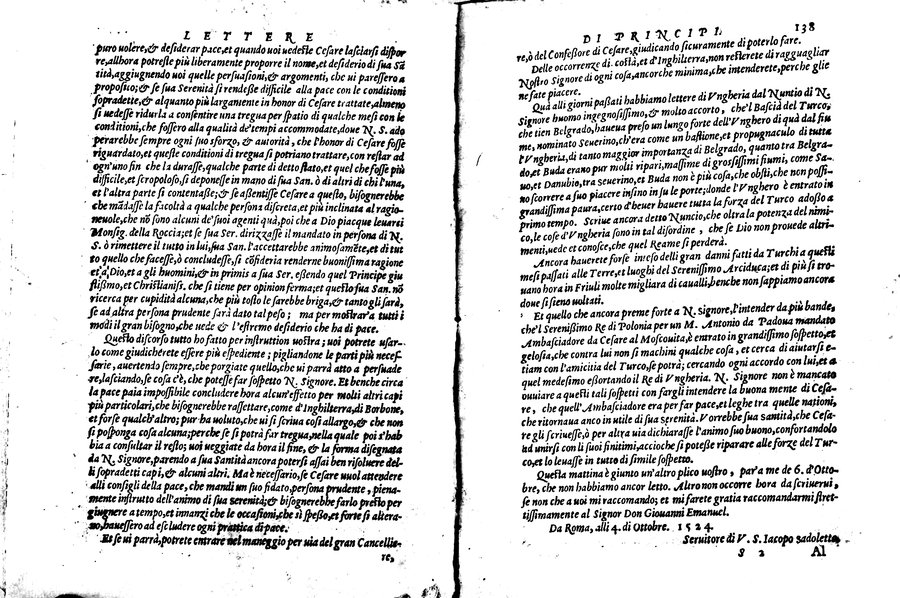 LETTERE
puro uolere,& desiderar pace,et quando uoi uedeste Cesare lasciarsi dispor
re,allhora potreste più liberamente proporre il nome,et desiderio di sua Sã
tità,aggiugnendo uoi quelle persuasioni,& argomenti, che ui paressero a
proposito;& se sua Serenità si rendesse difficile alla pace con le conditioni
sopradette,& alquanto più largamente in honor di Cesare trattate,almeno
si uedesse ridurla a consentire una tregua per spatio di qualche mesi con le
conditioni,che fossero alla qualità de'tempi accommodate,doue N. S. ado
perarebbe sempre ogni suo sforzo,& autorità, che l'honor di Cesare fosse
riguardato,et queste conditioni di tregua si potriano trattare,con restar ad
ogn'uno fin che la durasse,qualche parte di detto stato,et quel che fosse più
difficile,et scropoloso,si deponesse in mano di sua San. ò di altri di chi l'una,
et l'altra parte si contentasse;& se assentisse Cesare a questo, bisognerebbe
che mãdasse la facoltà a qualche persona discreta,et più inclinata al ragio-
neuole,che nõ sono alcuni de' suoi agenti quà,poi che a Dio piacque leuarci
Monsig. della Roccia;et se sua Ser. dirizzasse il mandato in persona di N.
S. ò rimettere il tutto in lui,sua San. l'accettarebbe animosamẽte,et di tut
to quello che facesse,ò concludesse,si cõfideria renderne buonissima ragione
et a Dio,et a gli huomini,& in primis a sua Ser. essendo quel Principe giu
stissimo,et Christianiss. che si tiene per opinion ferma;et questo sua San. nõ
ricerca per cupidità alcuna,che più tosto le sarebbe briga,& tanto gli sarà,
se ad altra persona prudente sarà dato tal peso; ma per mostrar'a tutti i
modi il gran bisogno,che uede & l'estremo desiderio che ha di pace.
Questo discorso tutto ho fatto per instruttion uostra; uoi potrete usar-
lo come giudicherete essere più espediente; pigliandone le parti più necess-
sarie, auertendo sempre, che porgiate quello,che ui parrà atto a persuade
re,lasciando,se cosa c'è, che potesse far sospetto N. Signore. Et benche circa
la pace paia impossibile concludere hora alcun'effetto per molti altri capi
più particolari, che bisognerebbe rassettare,come d'Inghilterra,di Borbone,
et forse qualch'altro; pur ha uoluto,che ui si scriua cosi allargo,& che non
si posponga cosa alcuna;perche se si potrà far tregua,nella quale poi s'hab
bia a consultar il resto; uoi ueggiate da hora il fine, & la forma disegnata
da N. Signore,parendo a sua Santità ancora potersi assai ben risoluere del-
li sopradetti capi,& alcuni altri. Ma è necessario,se Cesare uuol attendere
alli consigli della pace, che mandi un suo fidato,persona prudente, piena-
mente instrutto dell'animo di sua serenità;& bisognerebbe farlo presto per
giugnere a tempo,et innanzi che le occasioni,che sì spesso,et forte si altera-
no,hauessero ad escludere ogni prattica di pace.
Et se ui parrà,potrete entrare nel maneggio per uia del gran Cancellie-
re,
DI PRINCIPI. 138
re,ò del Confessore di Cesare,giudicando sicuramente di poterlo fare.
Delle occorrenze di costà,et d'Inghilterra,non resterete di ragguagliar
Nostro Signore di ogni cosa,ancorche minima,che intenderete,perche glie
ne fate piacere.
Quà alli giorni passati habbiamo lettere di Vngheria dal Nuntio di N.
Signore huomo ingegnosissimo,& molto accorto, che'l Bascià del Turco,
che tien Belgrado,haueua preso un luogo forte dell'Vnghero di quà dal fiu
me, nominato Seuerino,ch'era come un bastione,et propugnaculo di tutta
l'Vngheria,di tanto maggior importanza di Belgrado, quanto tra Belgra-
do,et Buda erano pur molti ripari,massime di grossissimi fiumi, come Sa-
uo,et Danubio,tra seuerino,et Buda non è più cosa,che obsti,che non possi-
no scorrere a suo piacere insino in su le porte;donde l'Vnghero è entrato in
grandissima paura,certo d'hauer hauere tutta la forza del Turco adosso a
primo tempo. Scriue ancora detto Nuncio,che oltra la potenza del nimi-
co,le cose d'Vngheria sono in tal disordine, che se Dio non prouede altri-
menti,uede et conosce,che quel Reame si perderà.
Ancora hauerete forse inteso delli gran danni fatti da Turchi a questi
mesi passati alle Terre,et luoghi del Serenissimo Arciduca;et di più si tro-
uano hora in Friuli molte migliara di caualli,benche non sappiamo ancora
doue si sieno uoltati.
Et quello che ancora preme forte a N. signore,l'intender da più bande,
che'l Serenissimo Re di Polonia per un M. Antonio da Padoua mandato
Ambasciadore da Cesare al Moscouita,è entrato in grandissimo sospetto,et
gelosia,che contra lui non si machini qualche cosa, et cerca di aiutarsi e-
tiam con l'amicitia del Turco,se potrà; cercando ogni accordo con lui,et a
quel medesimo essortando il Re di Vngheria. N. Signore non è mancato
ouuiare a questi tali sospetti con fargli intendere la buona mente di Cesa-
re, che quell'Ambasciadore era per far pace,et leghe tra quelle nationi,
che ritornaua anco in utile di sua serenità.Vorrebbe sua santità,che Cesa-
re gli scriuesse,ò per altra uia dichiarasse l'animo suo buono,confortandolo
ad unirsi con li suoi finitimi,accioche si potesse riparare alle forze del Tur-
co,et lo leuasse in tutto di simile sospetto.
Questa mattina è giunto un'altro plico uostro, par'a me de 6. d'Otto-
bre, che non habbiamo ancor letto. Altro non occorre hora da scriuerui,
se non che a uoi mi raccomando; et mi farete gratia raccomandarmi stret-
tissimamente al Signor Don Giouanni Emanuel.
Da Roma, alli 4. di Ottobre. 1524.
Seruitore di V. S. Iacopo Sadoletto.
S 2 Al